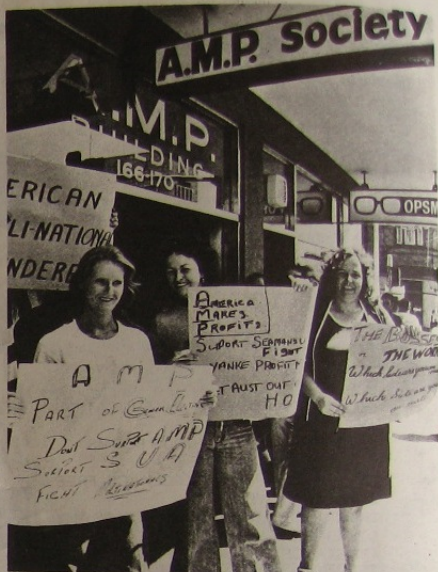 A.M.P. Society
A.M.P.
BUILDING
166-170
OPSM
ERICAN
LI-NATIONA
NDERE
AMERICA
MAKES
PROFITS
SUPPORT SEAMANS U
FIGHT
YANKE PROFIT
T AUST OUT
HO
THE BOSSES
THE WOR
Which
Which
A M P
PART OF
DONT SUPPORT AMP
SUPPORT S U A
FIGHT